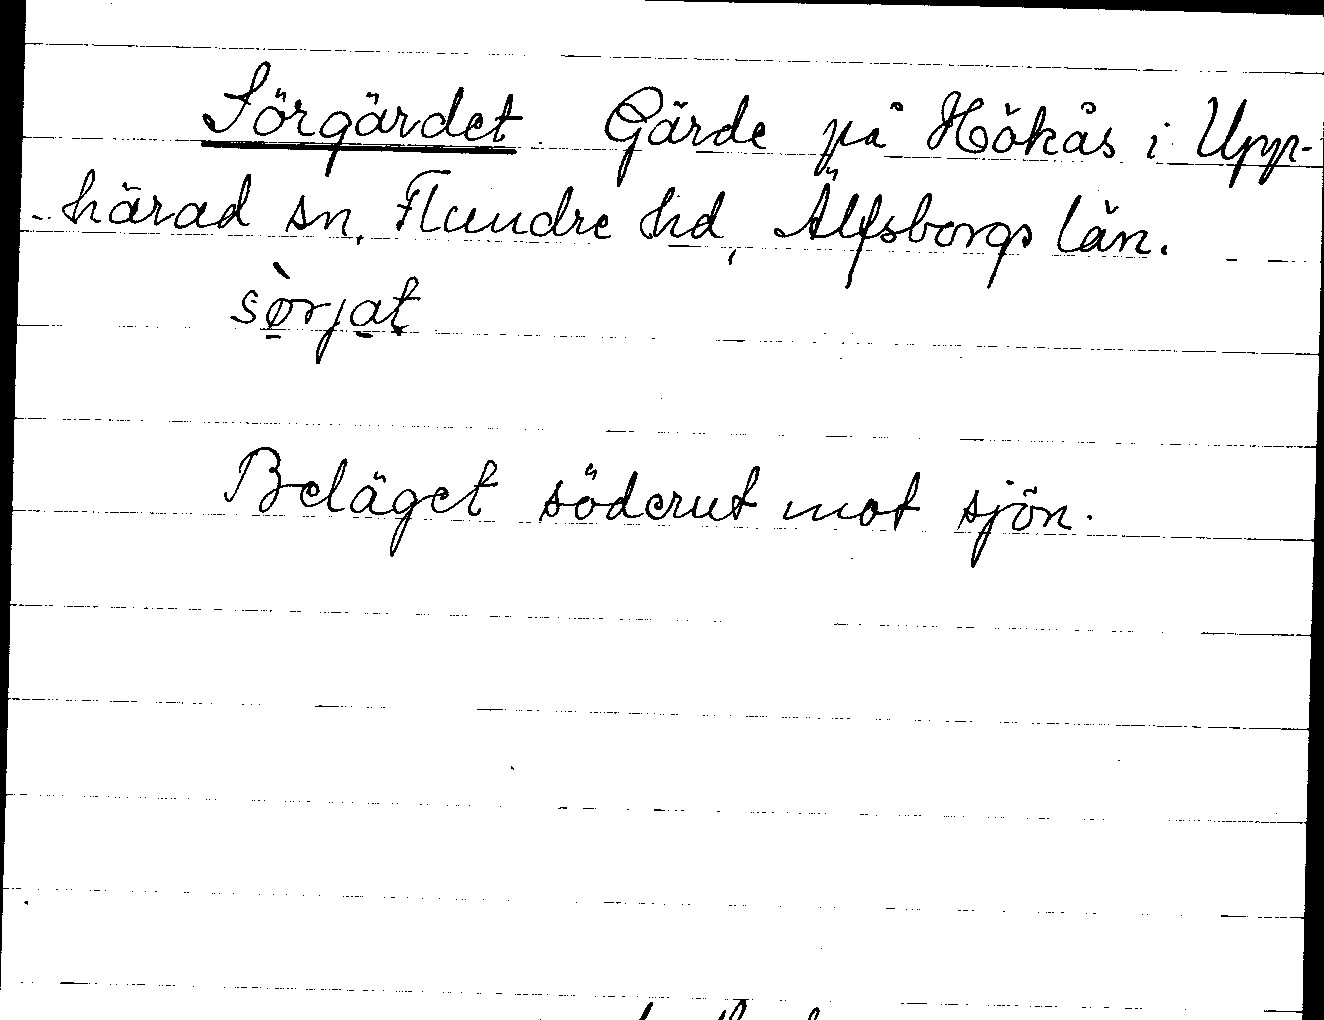 Sörgärdet. Gärde på Hökås i Upp-
härad sn, Flundre hd, Älfsborgs län.
sø̀rjat
Beläget söderut mot sjön.